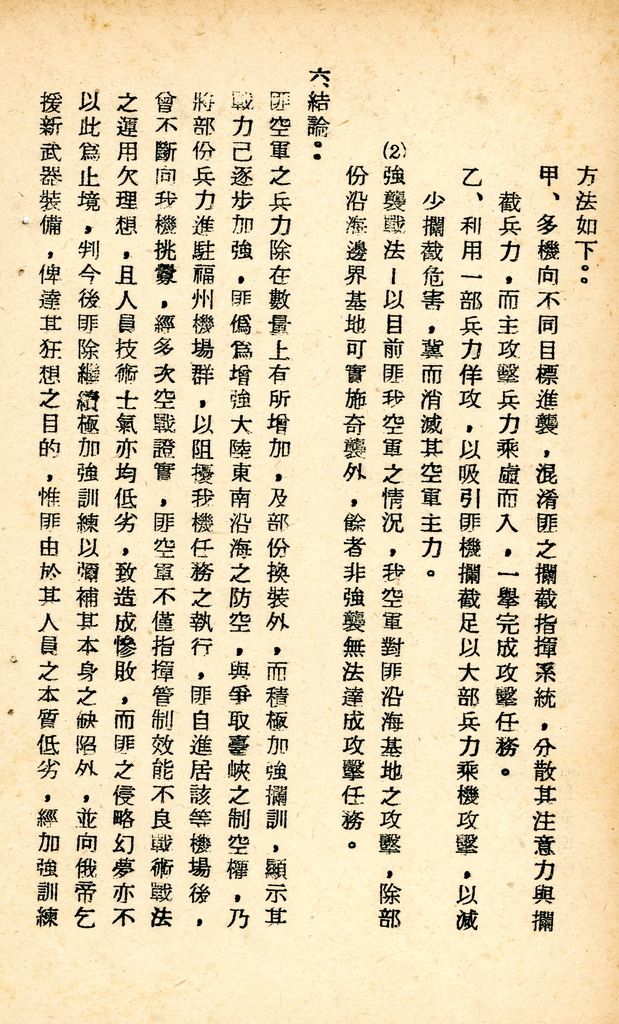 方法如下。。
甲、多機向不同目標進襲，混淆匪之攔截指揮系統，分散其注意力與攔
截兵力，而主攻擊兵力乘虛而入，一舉完成攻擊任務。
乙、利用一部兵力佯攻，以吸引匪機攔截足以大部兵力乘機攻擊，以減
少攔截危害，冀而消滅其空軍主力。
(2)強襲戰法－以目前匪我空軍之情況，我空軍對匪沿海基地之攻擊，除部
份沿海邊界基地可實施奇襲外，餘者非強襲無法達成攻擊任務。
六、結論：
匪空軍之兵力除在數量上有所增加，及部份換裝外，而積極加強攔訓，顯示其
戰力己逐步加強，匪僞爲增強大陸東南沿海之防空，與爭取臺峽之制空權，乃
將部份兵力進駐福州機場群，以阻擾我機任務之執行，匪自進居該等機場後，
曾不斷向我機挑釁，經多次空戰證實，匪空軍不僅指揮管制效能不良戰術戰法
之運用欠理想，且人員技術士氣亦均低劣，致造成慘敗，而匪之侵略幻夢亦不
以此爲止境，判今後匪除繼續極加強訓練以彌補其本身之缺陷外，並向俄帝乞
援新武器裝備，俾達其狂想之目的，惟匪由於其人員之本質低劣，經加強訓練